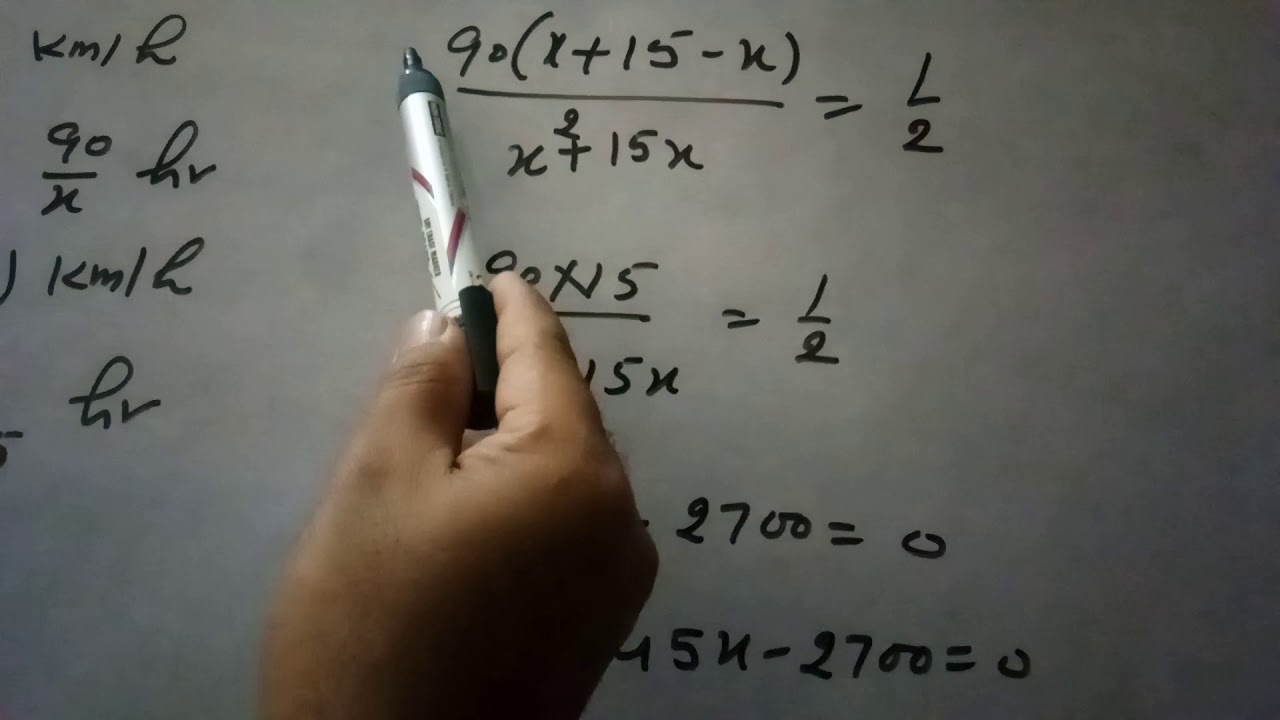 km/h
90/x hr
) km/h
hr
5
90(x+15-x)/x²+15x = 1/2
90×15/15x = 1/2
- 2700 = 0
45x - 2700 = 0